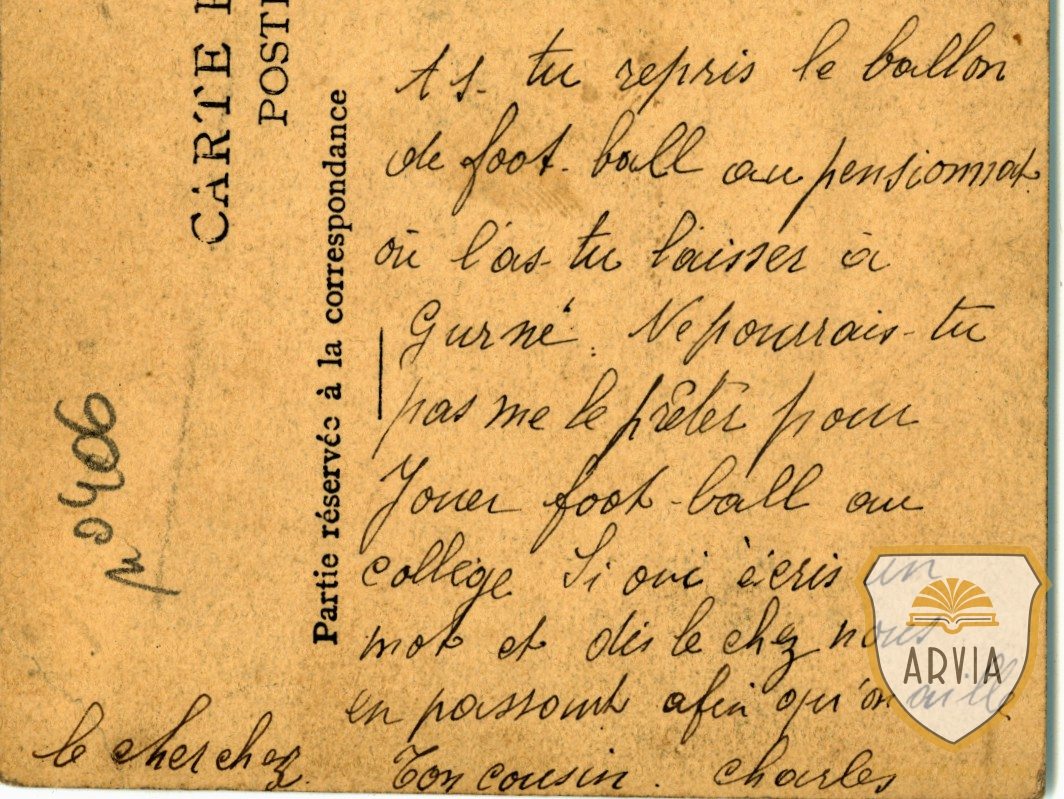 CARTE P
POSTE
Partie réservée à la correspondance
n° 406
As-tu repris le ballon
de foot-ball au pensionnat
où l'as-tu laisser à
Gurné. Ne pourrais-tu
pas me le prêter pour
Jouer foot-ball au
collège. Si oui écris un
mot et dis le chez nous
en passant afin qu'on aille
le cherchez. Ton cousin. Charles
ARVIA